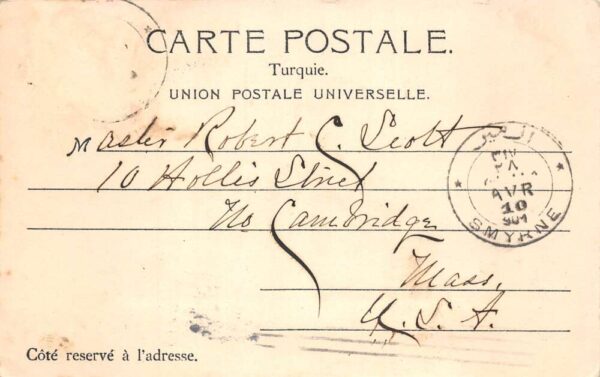 CARTE POSTALE.
Turquie.
UNION POSTALE UNIVERSELLE.
Master Robert C. Scott
10 Hollis Street
No Cambridge
Mass.
U.S.A.
AVR
10
901
SMYRNE
Côté reservé à l'adresse.